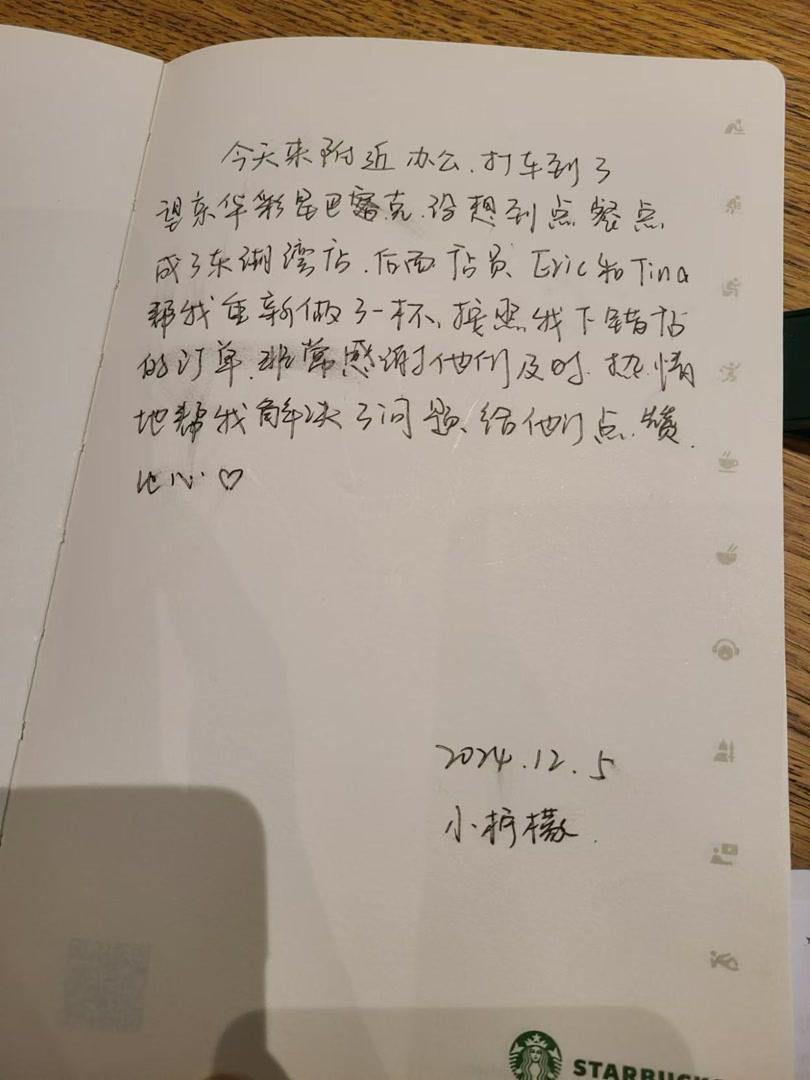 今天来附近办公,打车到了
望京华彩星巴克,没想到点餐点
成了东湖湾店.后面店员 Eric和Tina
帮我重新做了一杯,按照我下错店
的订单.非常感谢他们及时、热情
地帮我解决了问题、给他们点赞.
比心♡
2024.12.5
小柠檬.
STARBUCK